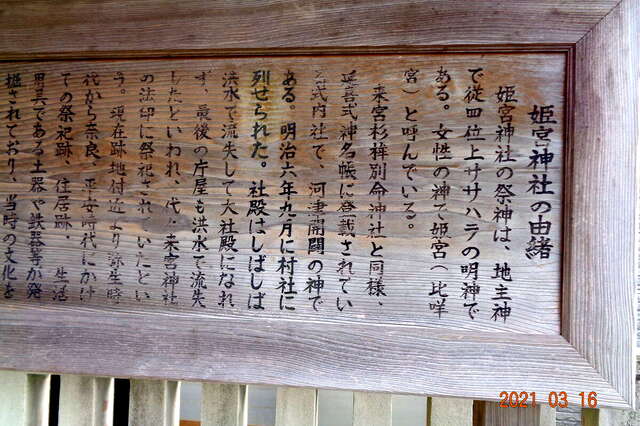 姫宮神社の由緒
姫宮神社の祭神は、地主神
で従四位上ササハラの明神で
ある。女性の神で姫宮（比咩
宮）と呼んでいる。
来宮杉桙別命神社と同様、
延喜式神名帳に登載されてい
る式内社で、河津開闢の神で
ある。明治六年九月に村社に
列せられた。社殿はしばしば
洪水で流失して大社殿になれ
ず、最後の庁屋も洪水で流失
したといわれ、代々来宮神社
の法印に祭祀されていたとい
う。現在跡地付近より弥生時
代から奈良、平安時代にかけ
ての祭祀跡、住居跡・生活
用具である土器や鉄器等が発
掘されており、当時の文化を
2021 03 16